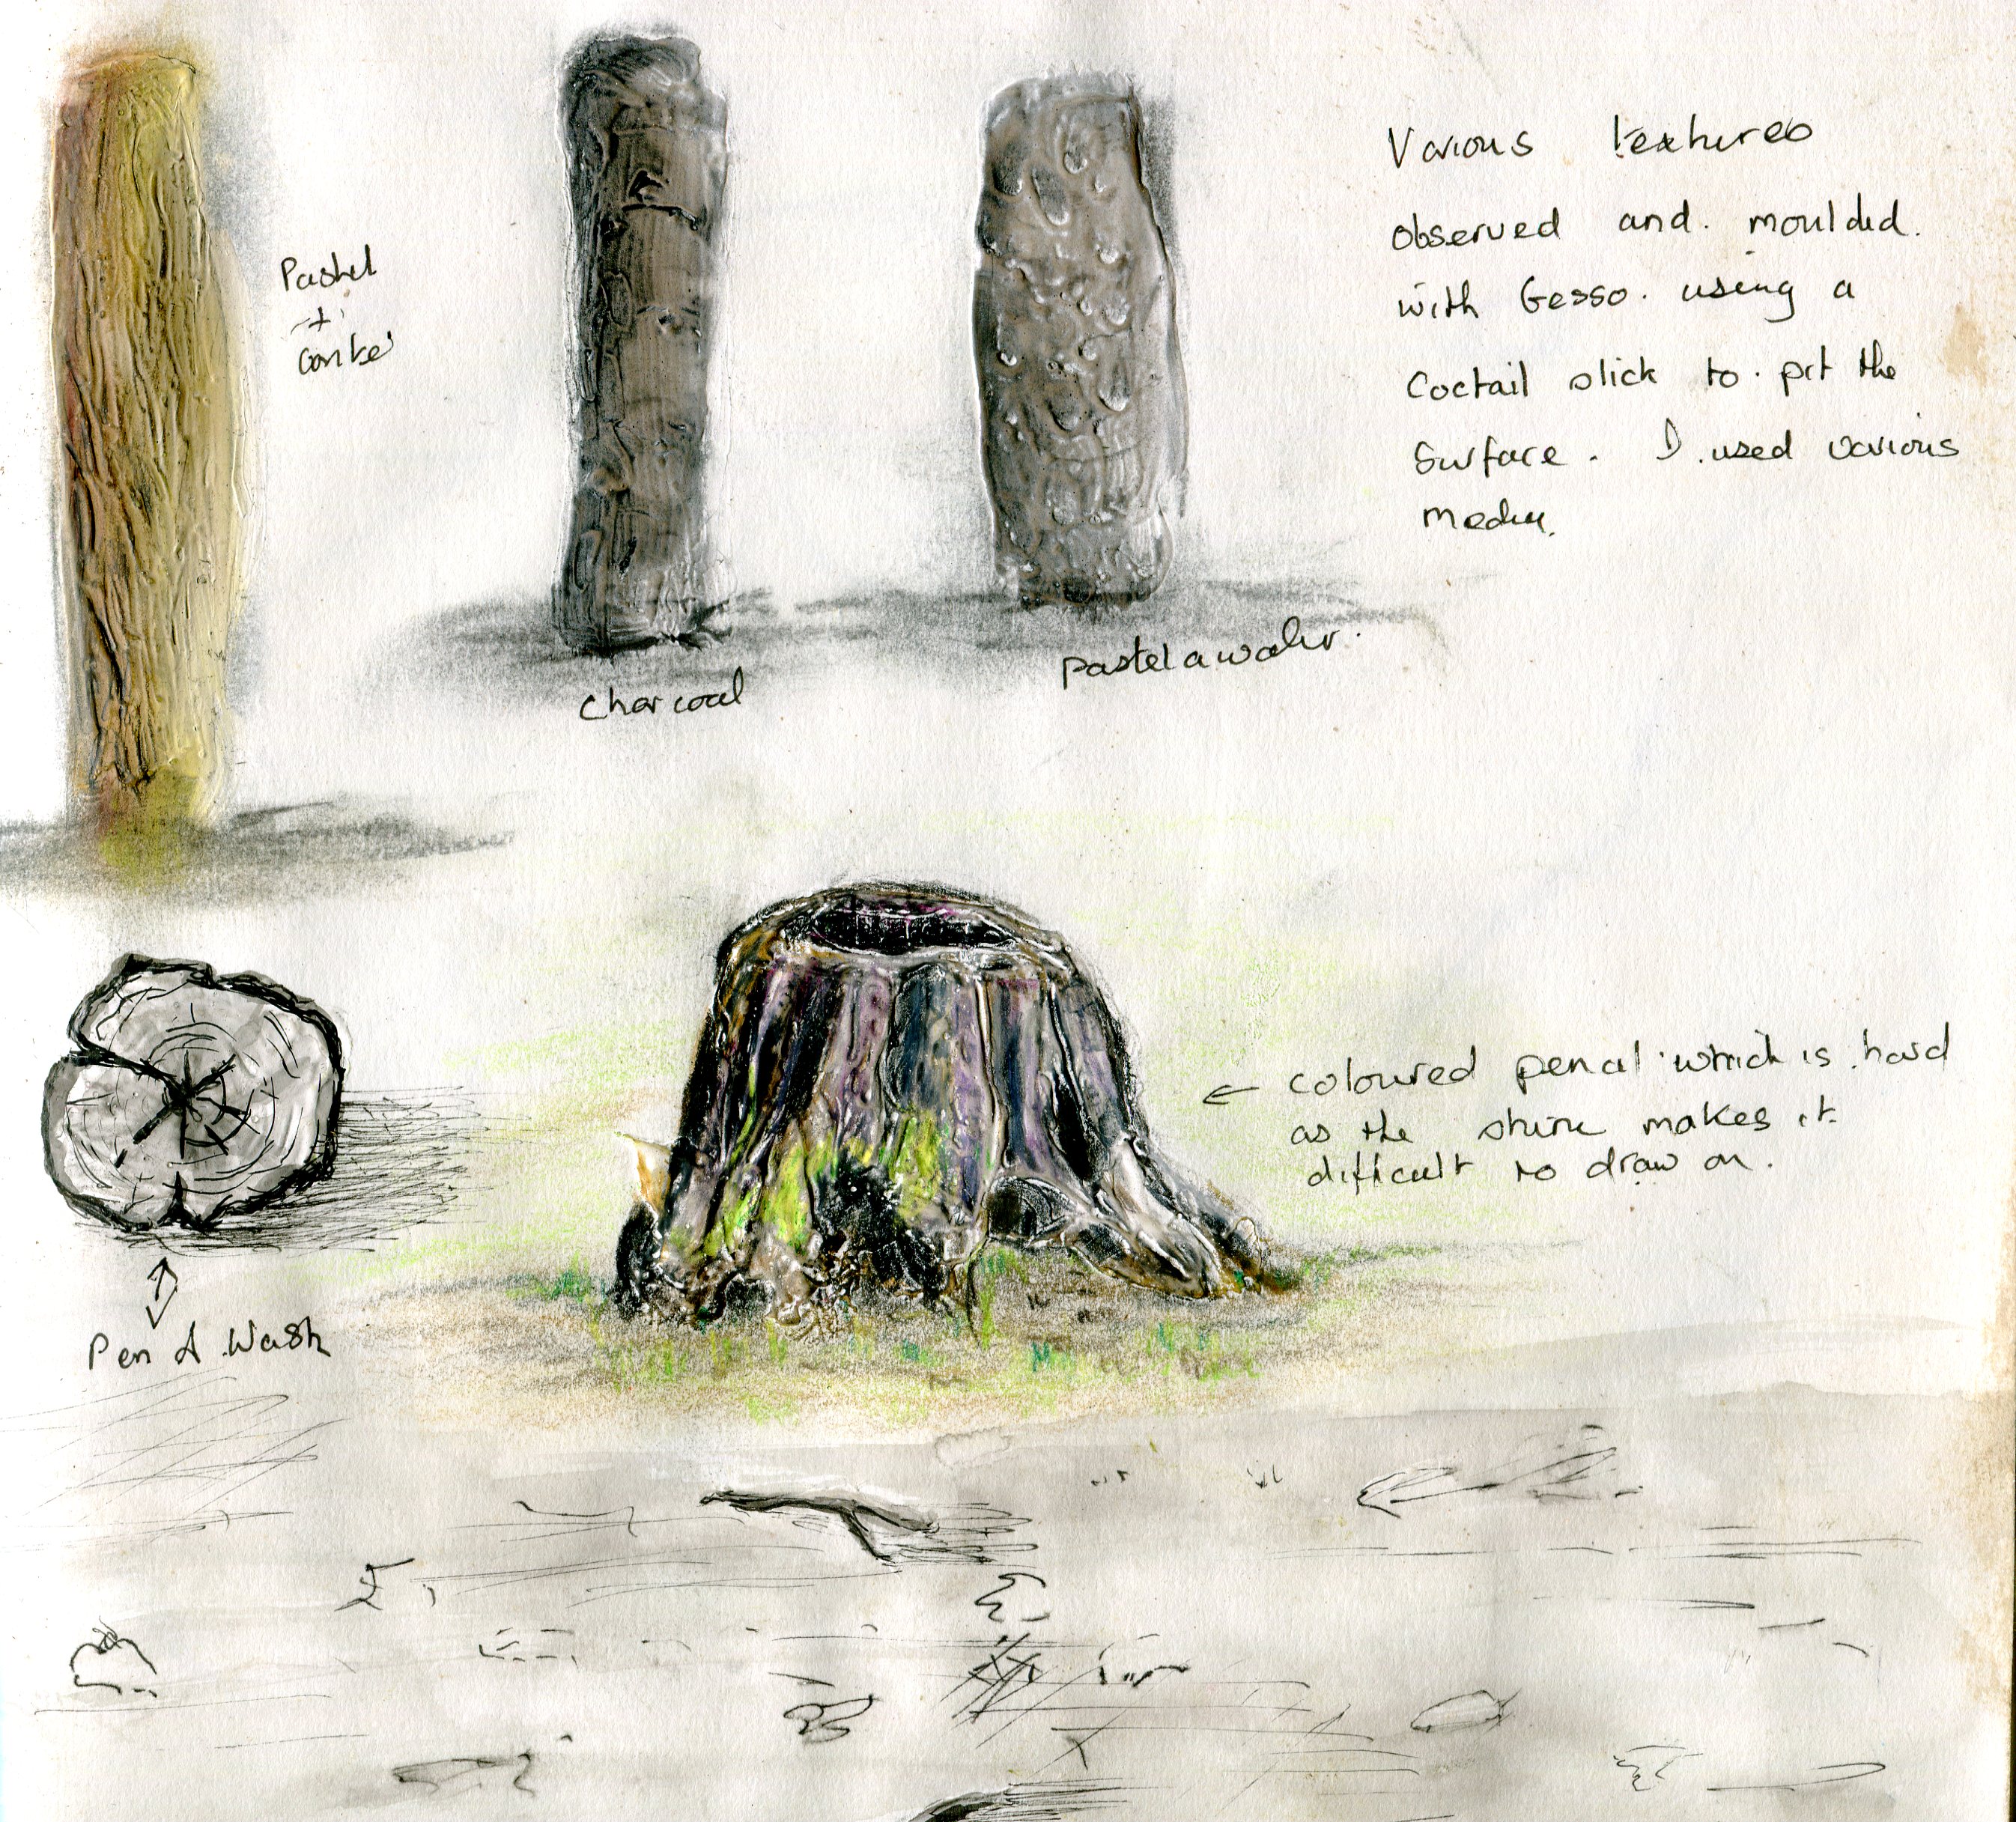 Various textures
observed and. moulded.
with Gesso. using a
Coctail stick to. pit the
Surface. I used various
Media.
Pastel
+
conte'
charcoal
pastel & water.
← coloured pencil which is hard
as the shine makes it
difficult to draw on.
Pen & Wash